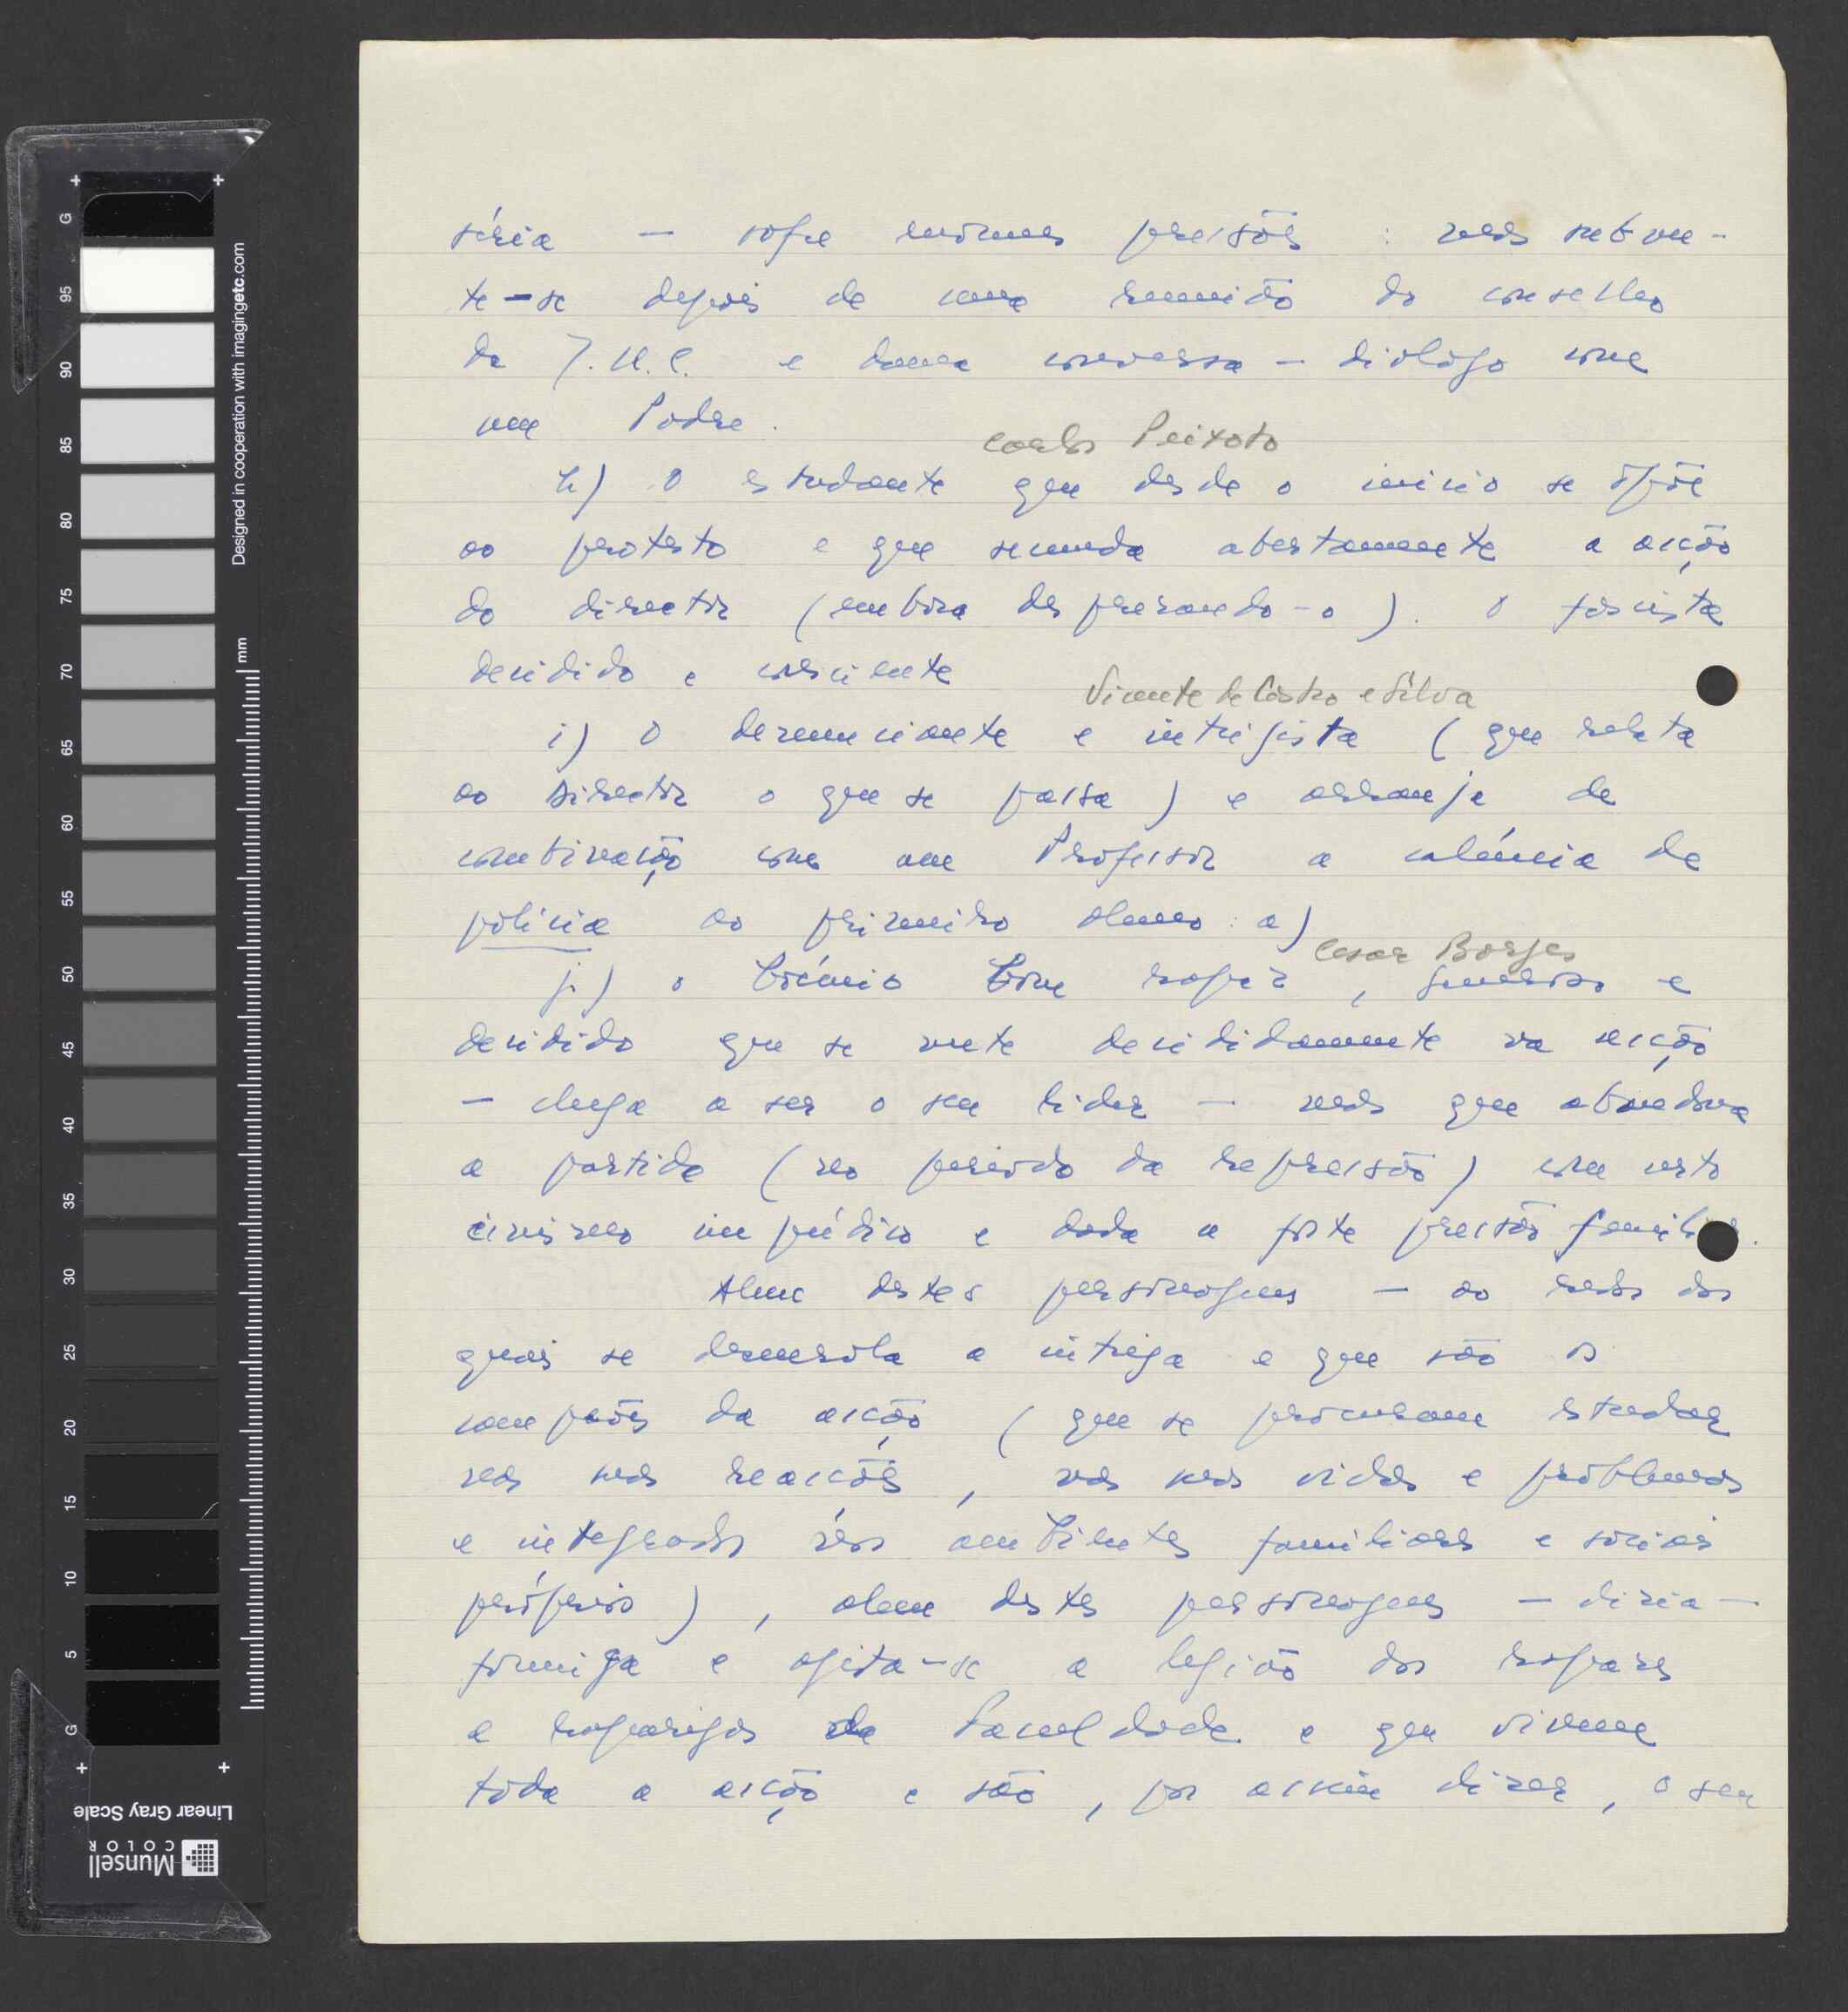 séria — sofre enormes pressões : mas subme-
te-se depois de uma reunião do conselho
da J.U.C. e duma conversa - diálogo com
um Padre.
Carlos Peixoto
h) O estudante que desde o inicio se opõe
ao protesto e que secunda abertamente a acção
do director (embora desprezando-o). O fascista
decidido e consciente
Vicente de Castro e Silva
i) O denunciante e intriguista (que relata
ao Director o que se passa) e arranja de
combinação com um Professor a calúnia de
polícia ao primeiro aluno: a)
Cesar Borges
j) o boémio bom rapaz, generoso e
decidido que se mete decididamente na acção
— chega a ser o seu lider — mas que abandona
a partida (no periodo da repressão) com certo
cinismo impúdico e dada a forte pressão familiar.
Alem destes personagens — ao redor dos
quais se desenrola a intriga e que são os
campeões da acção (que se procuram estudar
nas suas reacções, nas suas vidas e problemas
e integrados nos ambientes familiares e sociais
próprios), alem destes personagens — dizia —
formiga e agita-se a legião dos rapazes
e raparigas da Faculdade e que vivem
toda a acção e são, por assim dizer, o seu
Designed in cooperation with imagingetc.com
mm
G 95 90 85 80 75 70 65 60 55 50 45 40 35 30 25 20 15 10 5 G
Linear Gray Scale
Munsell
COLOR